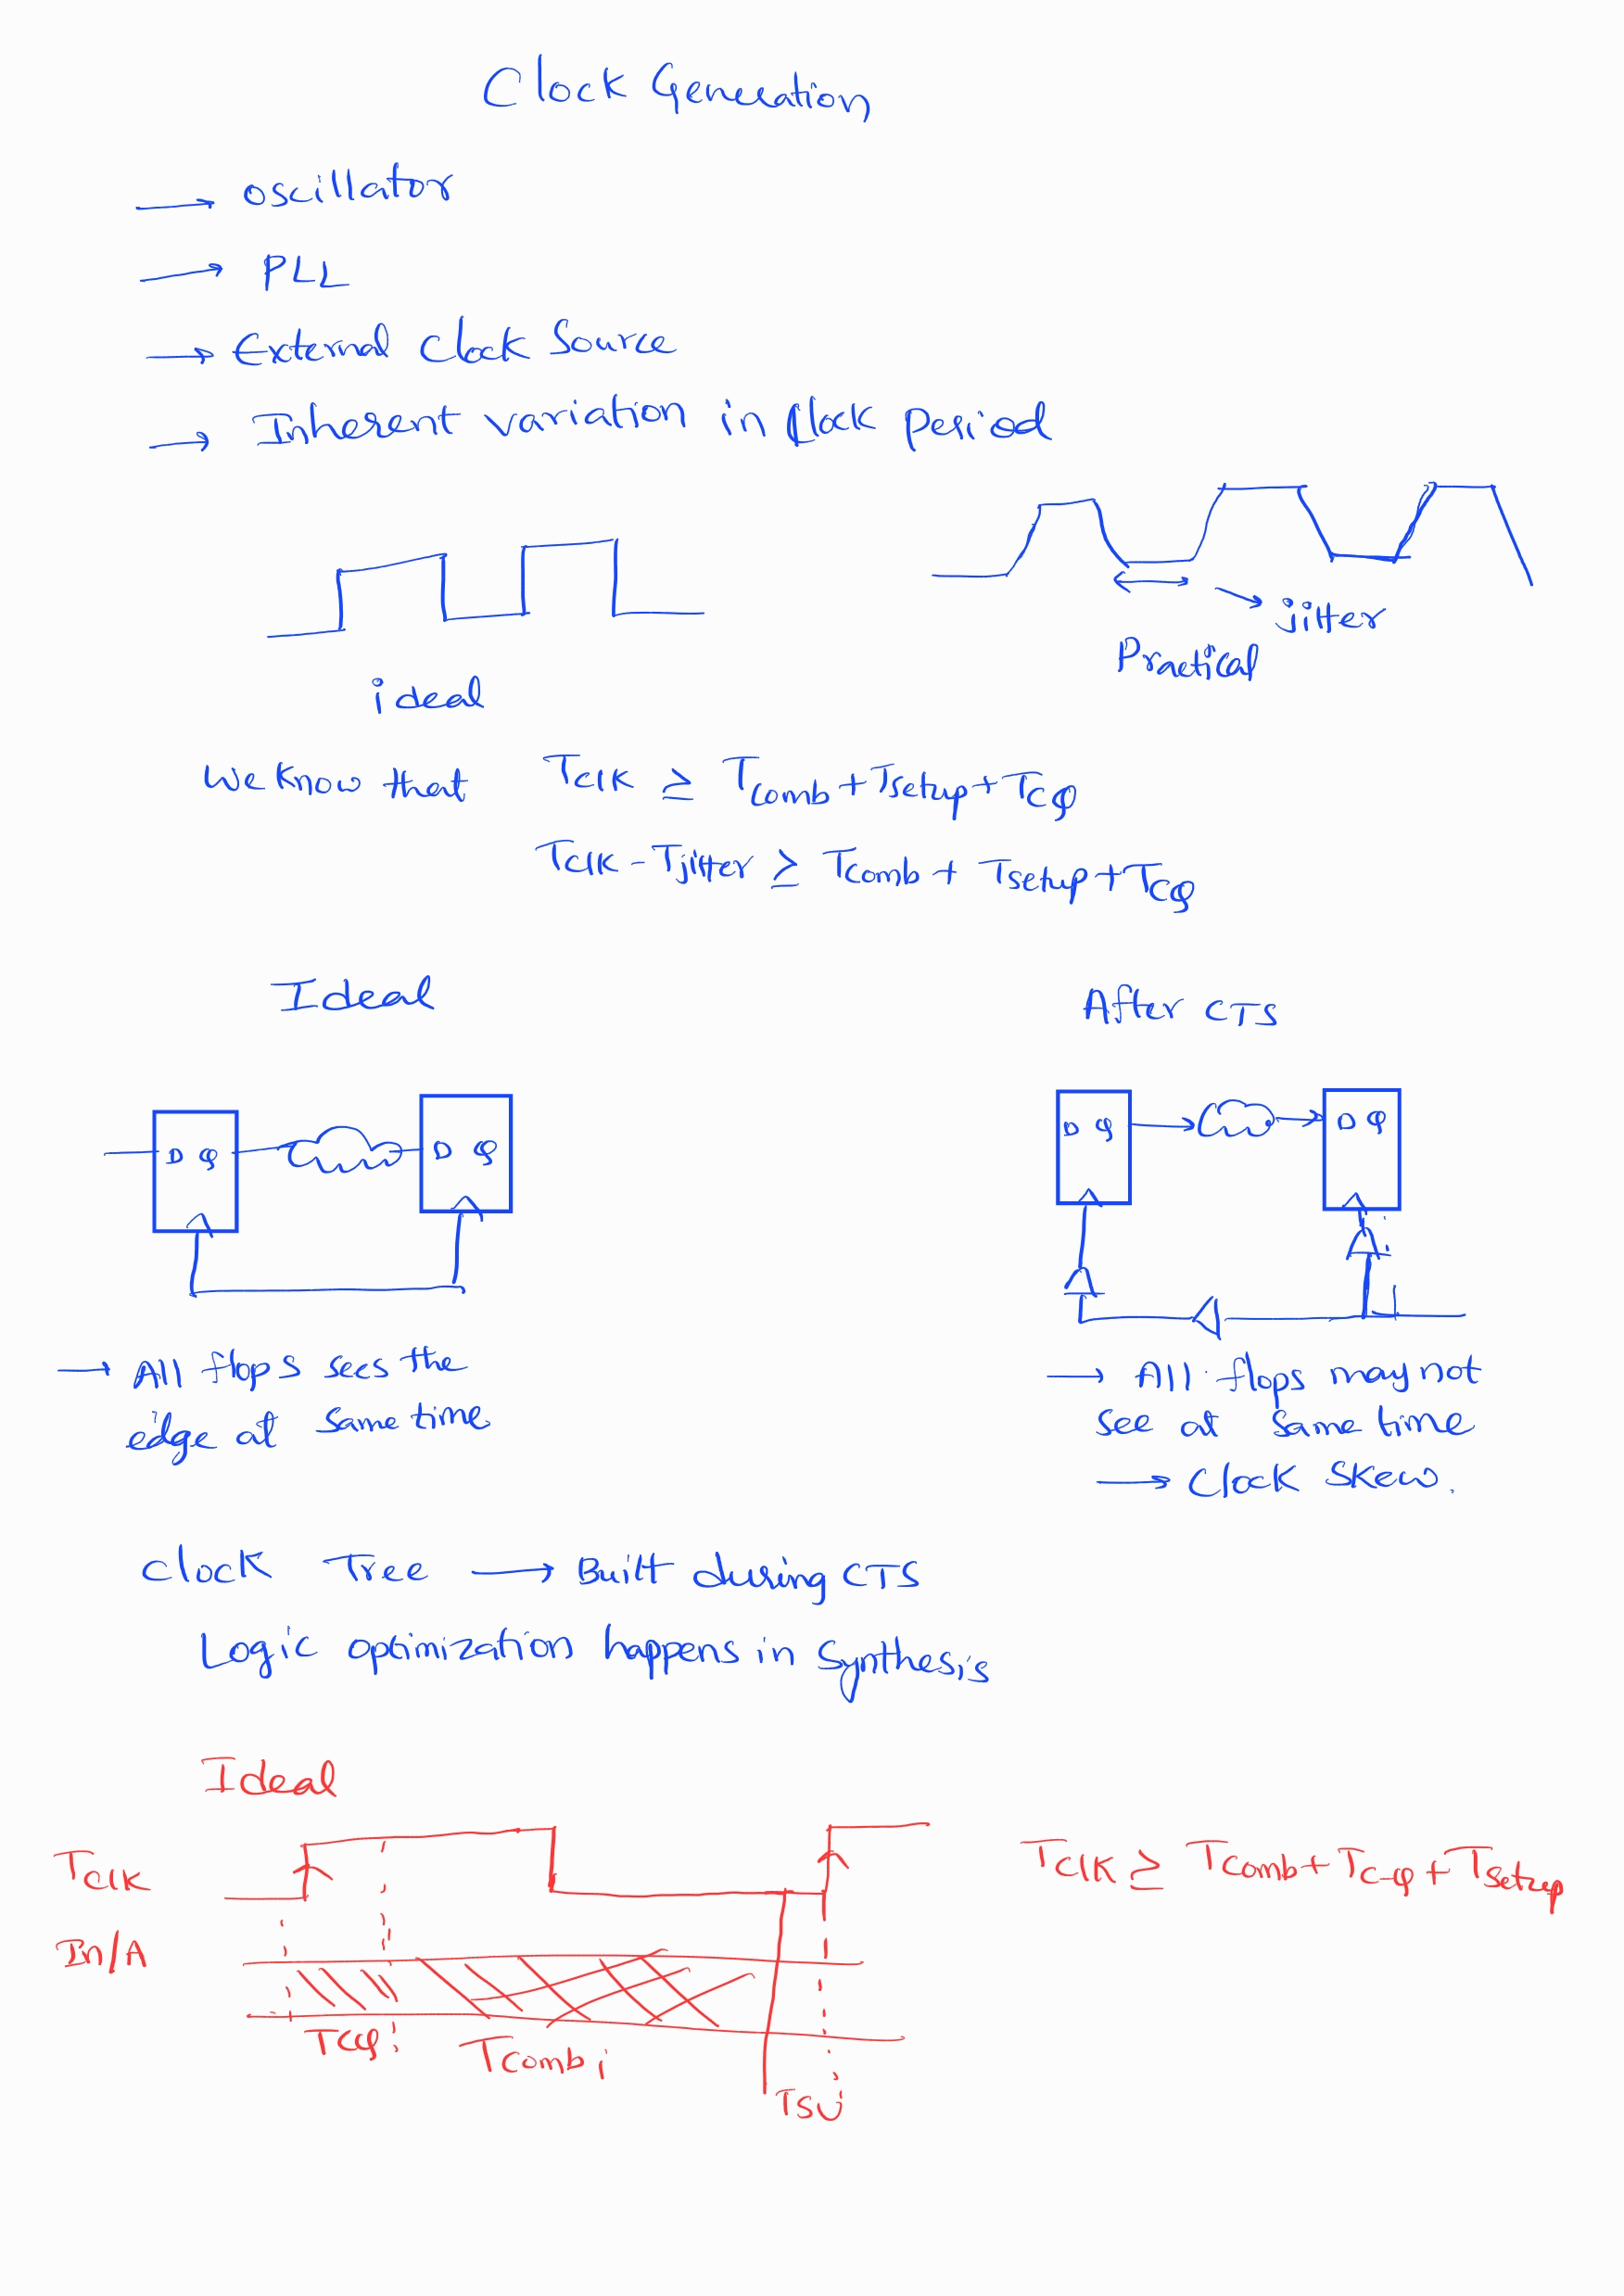 Clock Generation
→ oscillator
→ PLL
→ External Clock Source
→ Inherent variation in Clock Period
jitter
Practical
ideal
We Know that Tclk ≥ Tcomb + Tsetup + TCQ
Tclk - Tjitter ≥ Tcomb + Tsetup + TCQ
Ideal
After CTS
D Q D Q
D Q D Q
→ All flops sees the
edge at Same time
→ All flops may not
See at Same time
→ Clock Skew.
Clock Tree → Built during CTS
Logic optimization happens in Synthesis
Ideal
Tclk
Tclk ≥ Tcomb + Tc-q + Tsetup
In/A
TCQ
Tcombi
TSU